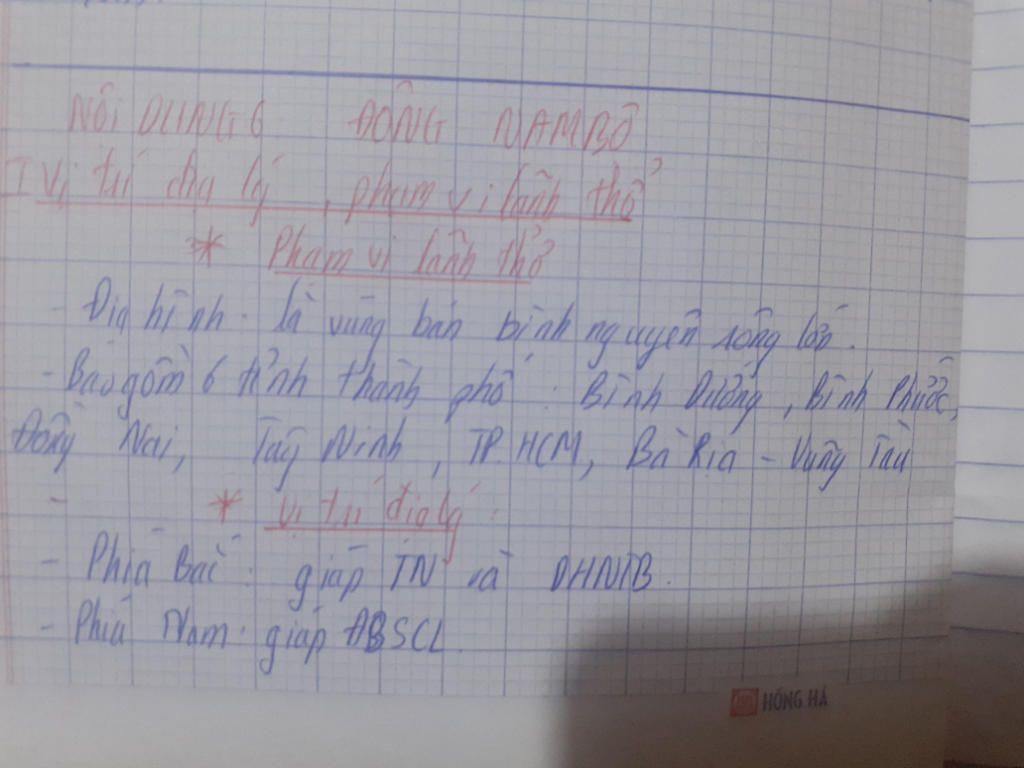 NỘI DUNG 6 ĐÔNG NAM BỘ
I Vị trí địa lý, phạm vi lãnh thổ
* Phạm vi lãnh thổ
- Địa hình: là vùng bán bình nguyên rộng lớn.
- Bao gồm 6 tỉnh thành phố: Bình Dương, Bình Phước,
Đồng Nai, Tây Ninh, TP. HCM, Bà Rịa - Vũng Tàu
- * Vị trí địa lý:
- Phía Bắc: giáp TN và DHNTB.
- Phía Nam: giáp ĐBSCL.
HỒNG HÀ